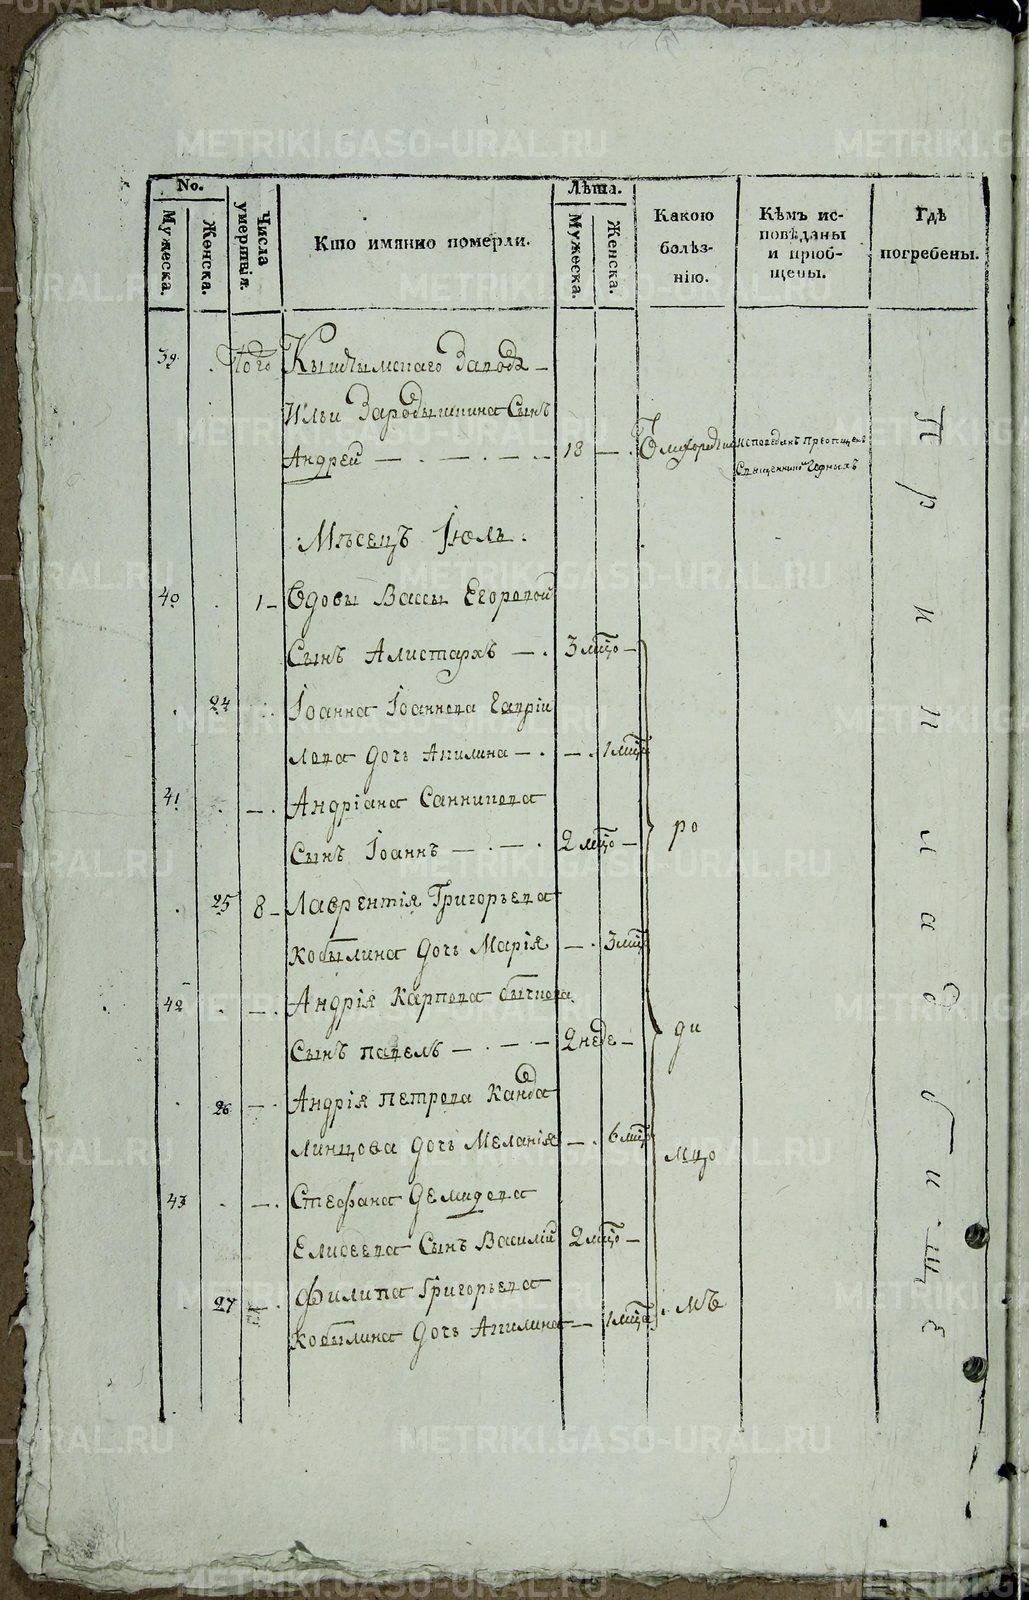 No.
Мужеска.
Женска.
Числа умертвія.
Кто имянно померли.
Лѣта.
Мужеска.
Женска.
Какою болѣз-нію.
Кѣмъ ис-повѣданы и пріоб-щены.
Гдѣ погребены.
39. Того Кыштымскаго Завода
Ильи Зародышкина Сынъ
Андрей 18
Священникомъ Черныхъ
Мѣсецъ Іюль
40 1 Вдовы Вассы Егоровой
Сынъ Алистархъ 3 мцо
24 Іоанна Іоаннова Гаврі
лова дочь Акилина 1 мцо
41 Андріана Санникова
Сынъ Іоаннъ 2 мцо
25 8 Лаврентія Григорьева
Кобылина дочь Марія 3 мцо
42 Андрія Карпова бычкова
Сынъ павелъ 2 неде
26 Андрія петрова Канда
линцова дочь Меланія 6 мцо
43 Стефана Демидова
Елисеева Сынъ Василій 2 мцо
27 Филипа Григорьева
Кобылина дочь Акилина 1 мцо
ро
ди
мцо
мъ
METRIKI.GASO-URAL.RU